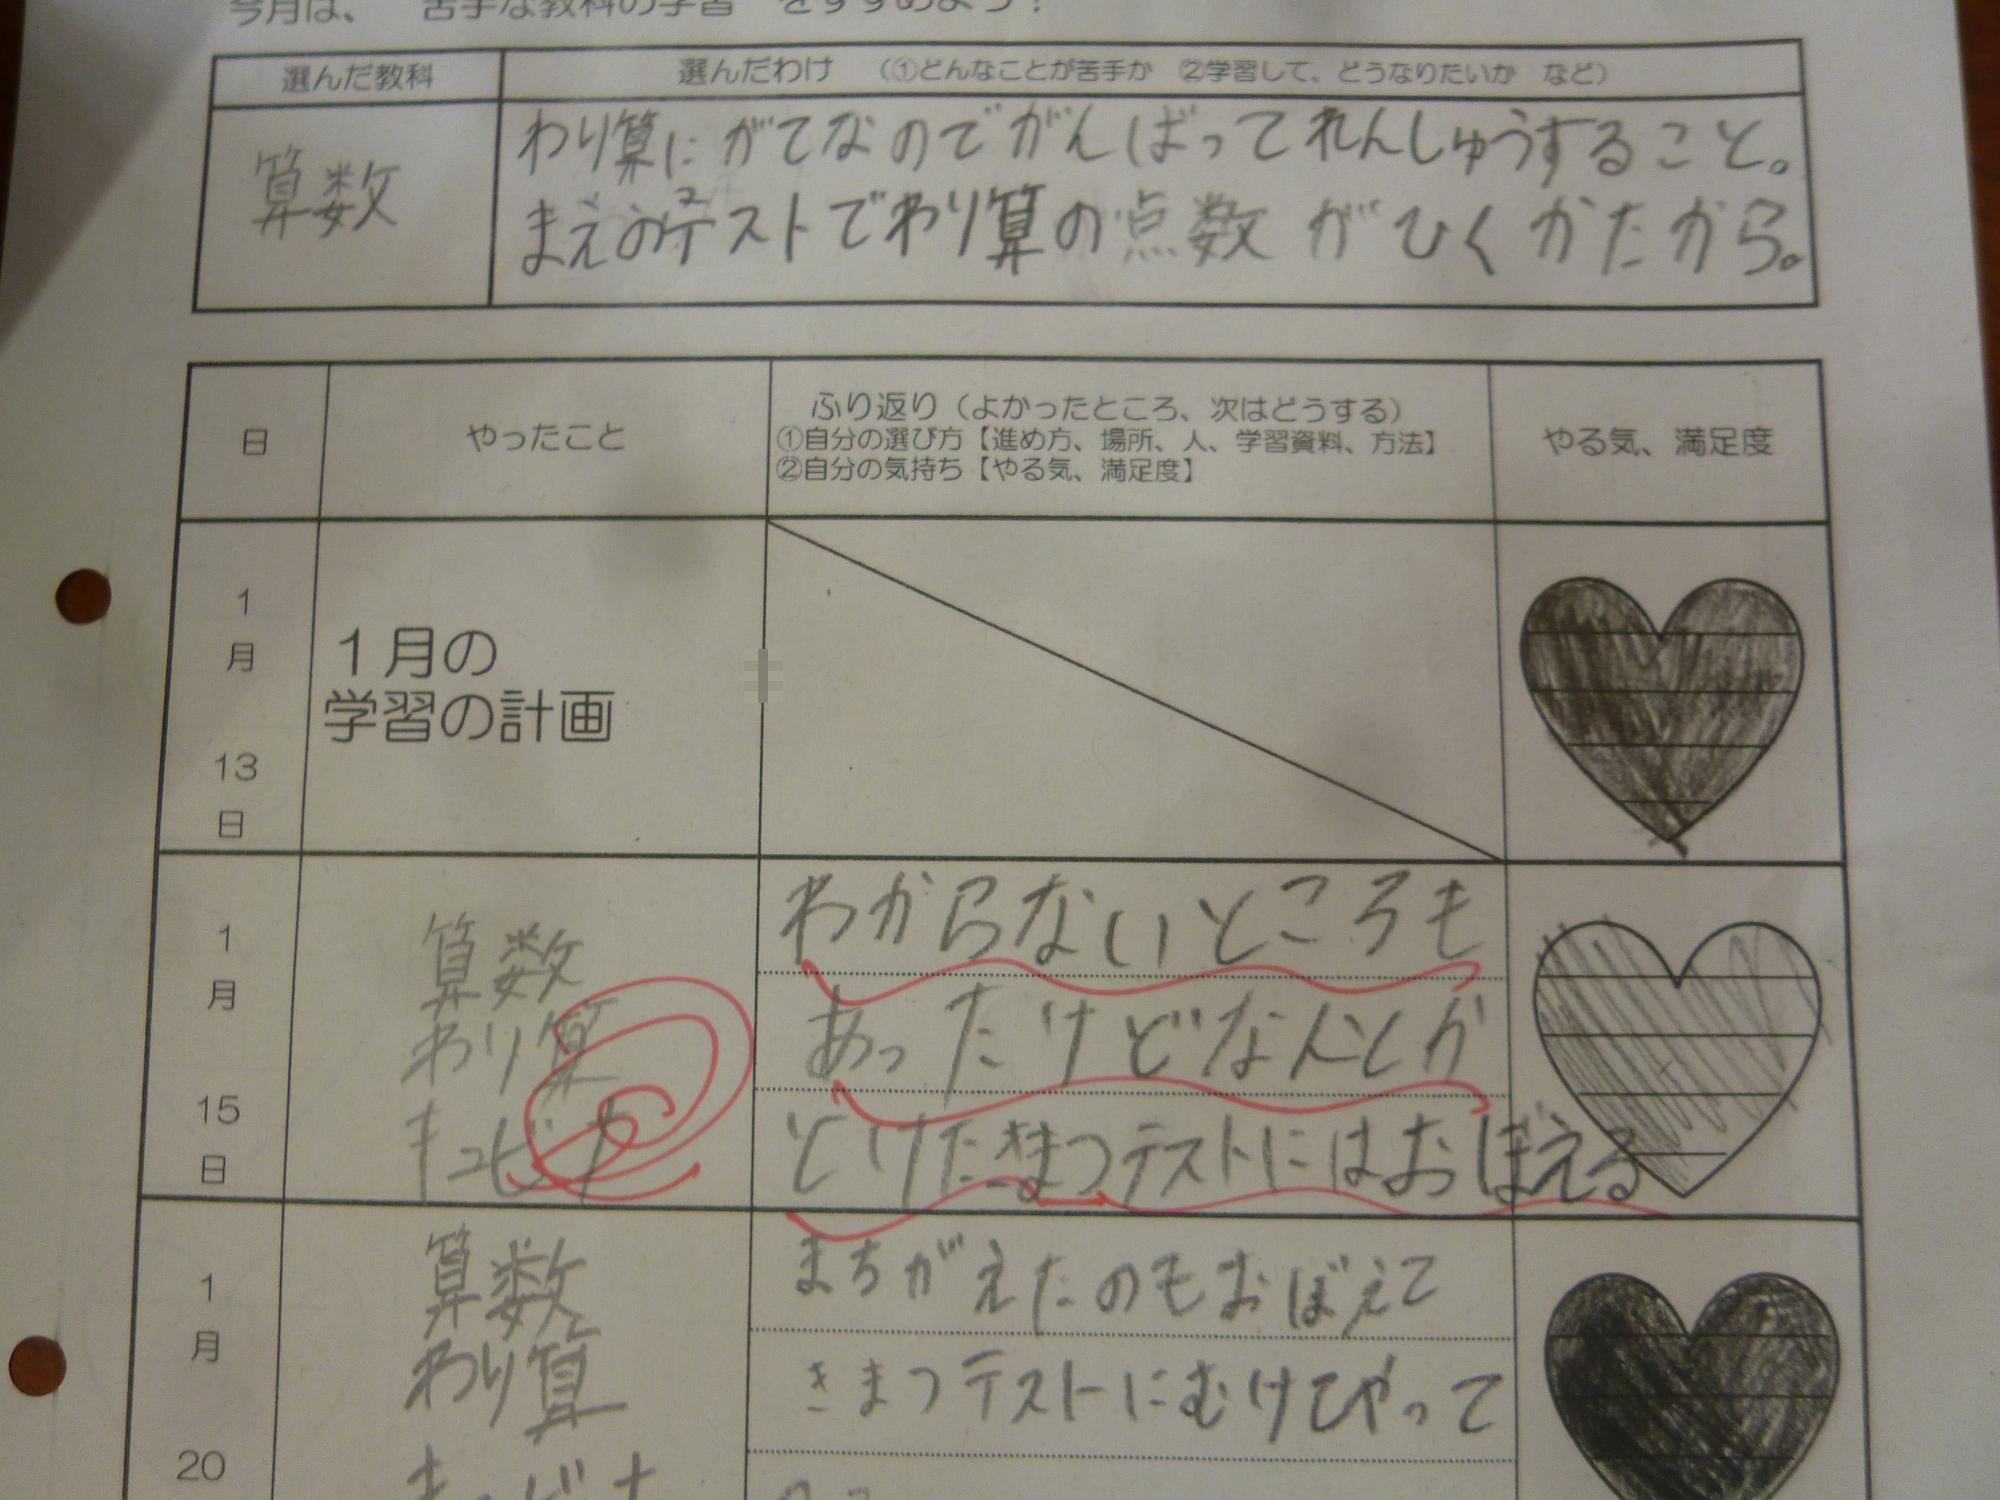 今月は、 苦手な教科の学習 をすすめよう！
選んだ教科
選んだわけ （①どんなことが苦手か ②学習して、どうなりたいか など）
算数
わり算にがてなのでがんばってれんしゅうすること。
まえのテストでわり算の点数がひくかたから。
日
やったこと
ふり返り（よかったところ、次はどうする）
①自分の選び方【進め方、場所、人、学習資料、方法】
②自分の気持ち【やる気、満足度】
やる気、満足度
1月13日
１月の
学習の計画
1月15日
算数
わり算
キュビナ
わからないところも
あったけどなんとか
とけたきまつテストにはおぼえる
1月20
算数
わり算
キュビナ
まちがえたのもおぼえて
きまつテストにむけてやって